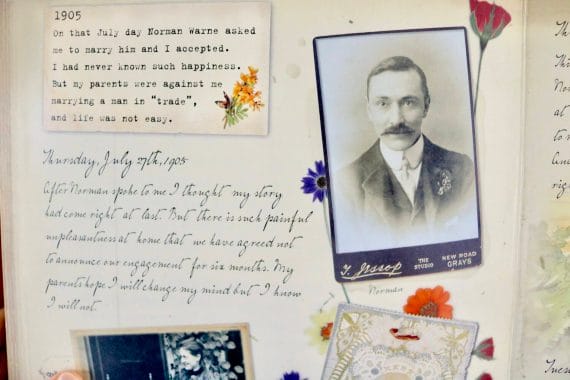 1905
On that July day Norman Warne asked
me to marry him and I accepted.
I had never known such happiness.
But my parents were against me
marrying a man in “trade”,
and life was not easy.
Thursday, July 27th, 1905
After Norman spoke to me I thought my story
had come right at last. But there is such painful
unpleasantness at home that we have agreed not
to announce our engagement for six months. My
parents hope I will change my mind but I know
I will not.
T. Jessop
THE
STUDIO
NEW ROAD
GRAYS
Norman